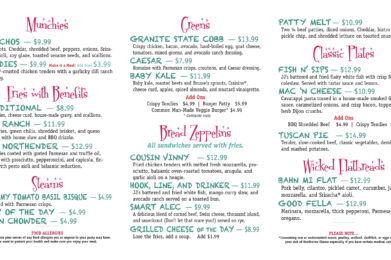 Munchies
CHOS — $9.99
ots, Cheddar, shredded beef, peppers, onions, Seira-
oli, soy glaze, toasted sesame seeds, and scallions.
DIES — $9.99 Make it a Meal: $3.99
-roasted chicken tenders with a garlicky dill ranch
Fries with Benefits
DITIONAL — $8.99
ies, cheese curd, house-made gravy, and scallions.
RANCH — $11.99
ries, green chilis, shredded brisket, and queso
with house slaw and BBQ drizzle.
NORTHENDER — $12.99
ies coated with garnet Parmesan and truffle oil,
with prosciutto, pepperoncini, and capicola, fin-
with pesto aioli and balsamic reduction.
Steam's
MY TOMATO BASIL BISQUE — $4.99
ed with Parmesan crisps.
OF THE DAY — $4.99
N CHOWDER — $4.99
FOOD ALLERGIES
Green's
GRANITE STATE COBB — $13.99
Crispy chicken, bacon, avocado, hard-boiled egg, goat cheese,
tomatoes, mixed greens, and avocado ranch dressing.
CAESAR — $7.99
Romaine with Parmesan crisps, croutons, and Caesar dressing.
BABY KALE — $11.99
Baby kale, roasted beets and Brussels sprouts, Craisins®,
cheese curd, apples, spiced almonds, and mustard vinaigrette.
Add Ons
Crispy Tenders $4.99 | Burger Patty $5.99
Common Man-Made Veggie Burger* $4.99
Bread Zeppelins
All sandwiches served with fries.
COUSIN VINNY — $12.99
Fried chicken tenders with melted fresh mozzarella, pro-
sciutto, balsamic oven-roasted tomatoes, arugula, and
garlic aioli on a hoagie.
HOOK, LINE, AND DRINKER — $11.99
IJ's battered and fried white fish, mango curry slaw, and
avocado ranch served on a toasted bun.
SMART ALEC — $9.99
A delicious blend of corned beef, Swiss cheese, thousand island,
and sauerkraut (Don't let that scare you!) served on rye.
GRILLED CHEESE OF THE DAY — $8.99
Lose the fries, add a soup. Add $1.99
PATTY MELT — $10.99
Two ¼ beef patties, diced onions, Cheddar, bistro
pickle chip, and shredded lettuce on toasted sour
Classic Plates
FISH N' SIPS — $12.99
IJ's battered and fried flaky white fish with crisp
coleslaw. Served with tartar sauce and lemon.
MAC 'N CHEESE — $10.99
Cavatappi pasta tossed in a house-made smoked
sauce, caramelized onions, and crisp bacon, topped
herb Dijon crumbs.
Add Ons
BBQ Shredded Beef $4.99 | Crispy
TUSCAN PIE — $14.99
Tender, slow-cooked beef, classic vegetables, dem
and mashed potatoes.
Wicked Flatbreads
BAHN MI FLAT — $12.99
Pork belly, cilantro, pickled carrot, cucumber,
mozzarella, and Sriracha® aioli.
GOOD FELLA — $12.99
Marinara, mozzarella, thick pepperoni, Parmesan
oregano.
PLEASE NOTE...